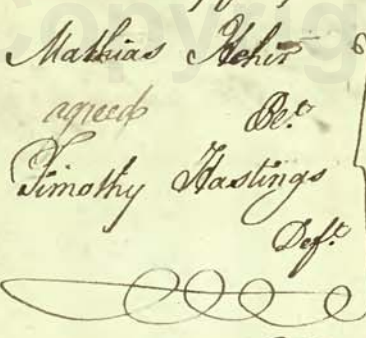 Mathias Hehir
agreed Plt.
Timothy Hastings
Deft.